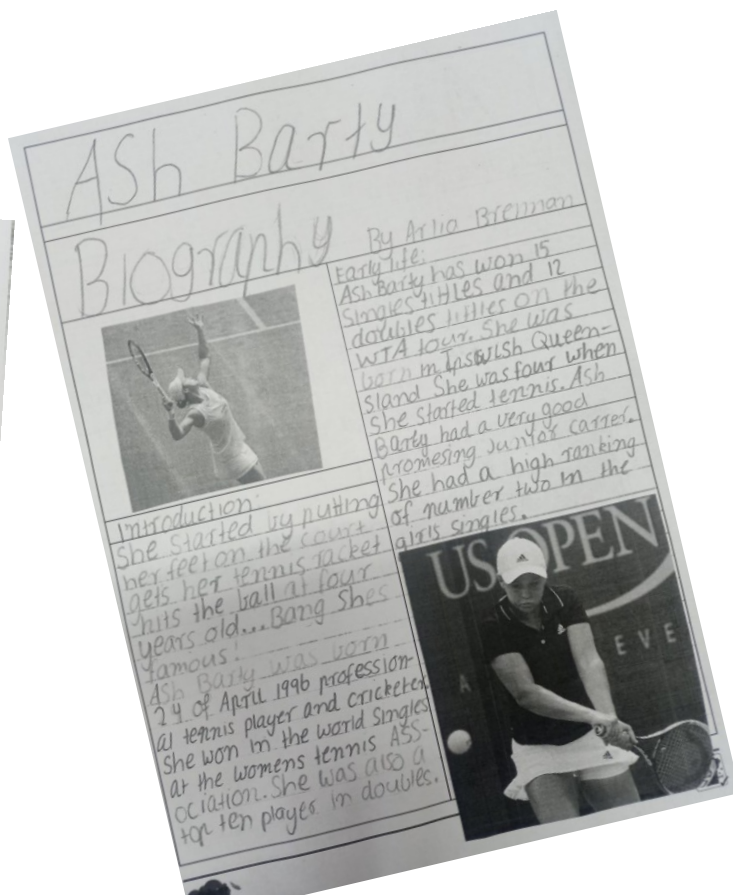 Ash Barty
Biography
By Arlio Brennan
Introduction:
She started by putting
her feet on the court
gets her tennis racket
hits the ball at four
years old... Bang Shes
famous!
Ash Barty was born
24 of April 1996 profession-
al tennis player and cricketer
She won in the world Singles
at the womens tennis Ass-
ociation. She was also a
top ten player in doubles.
Early life:
Ash Barty has won 15
Singles tittles and 12
doubles tittles on the
WTA tour. She was
born in Ipswish Queen-
sland She was four when
She started tennis. Ash
Barty had a very good
promesing Junior carrer.
She had a high ranking
of number two in the
girls singles.
US OPEN
A
EVE